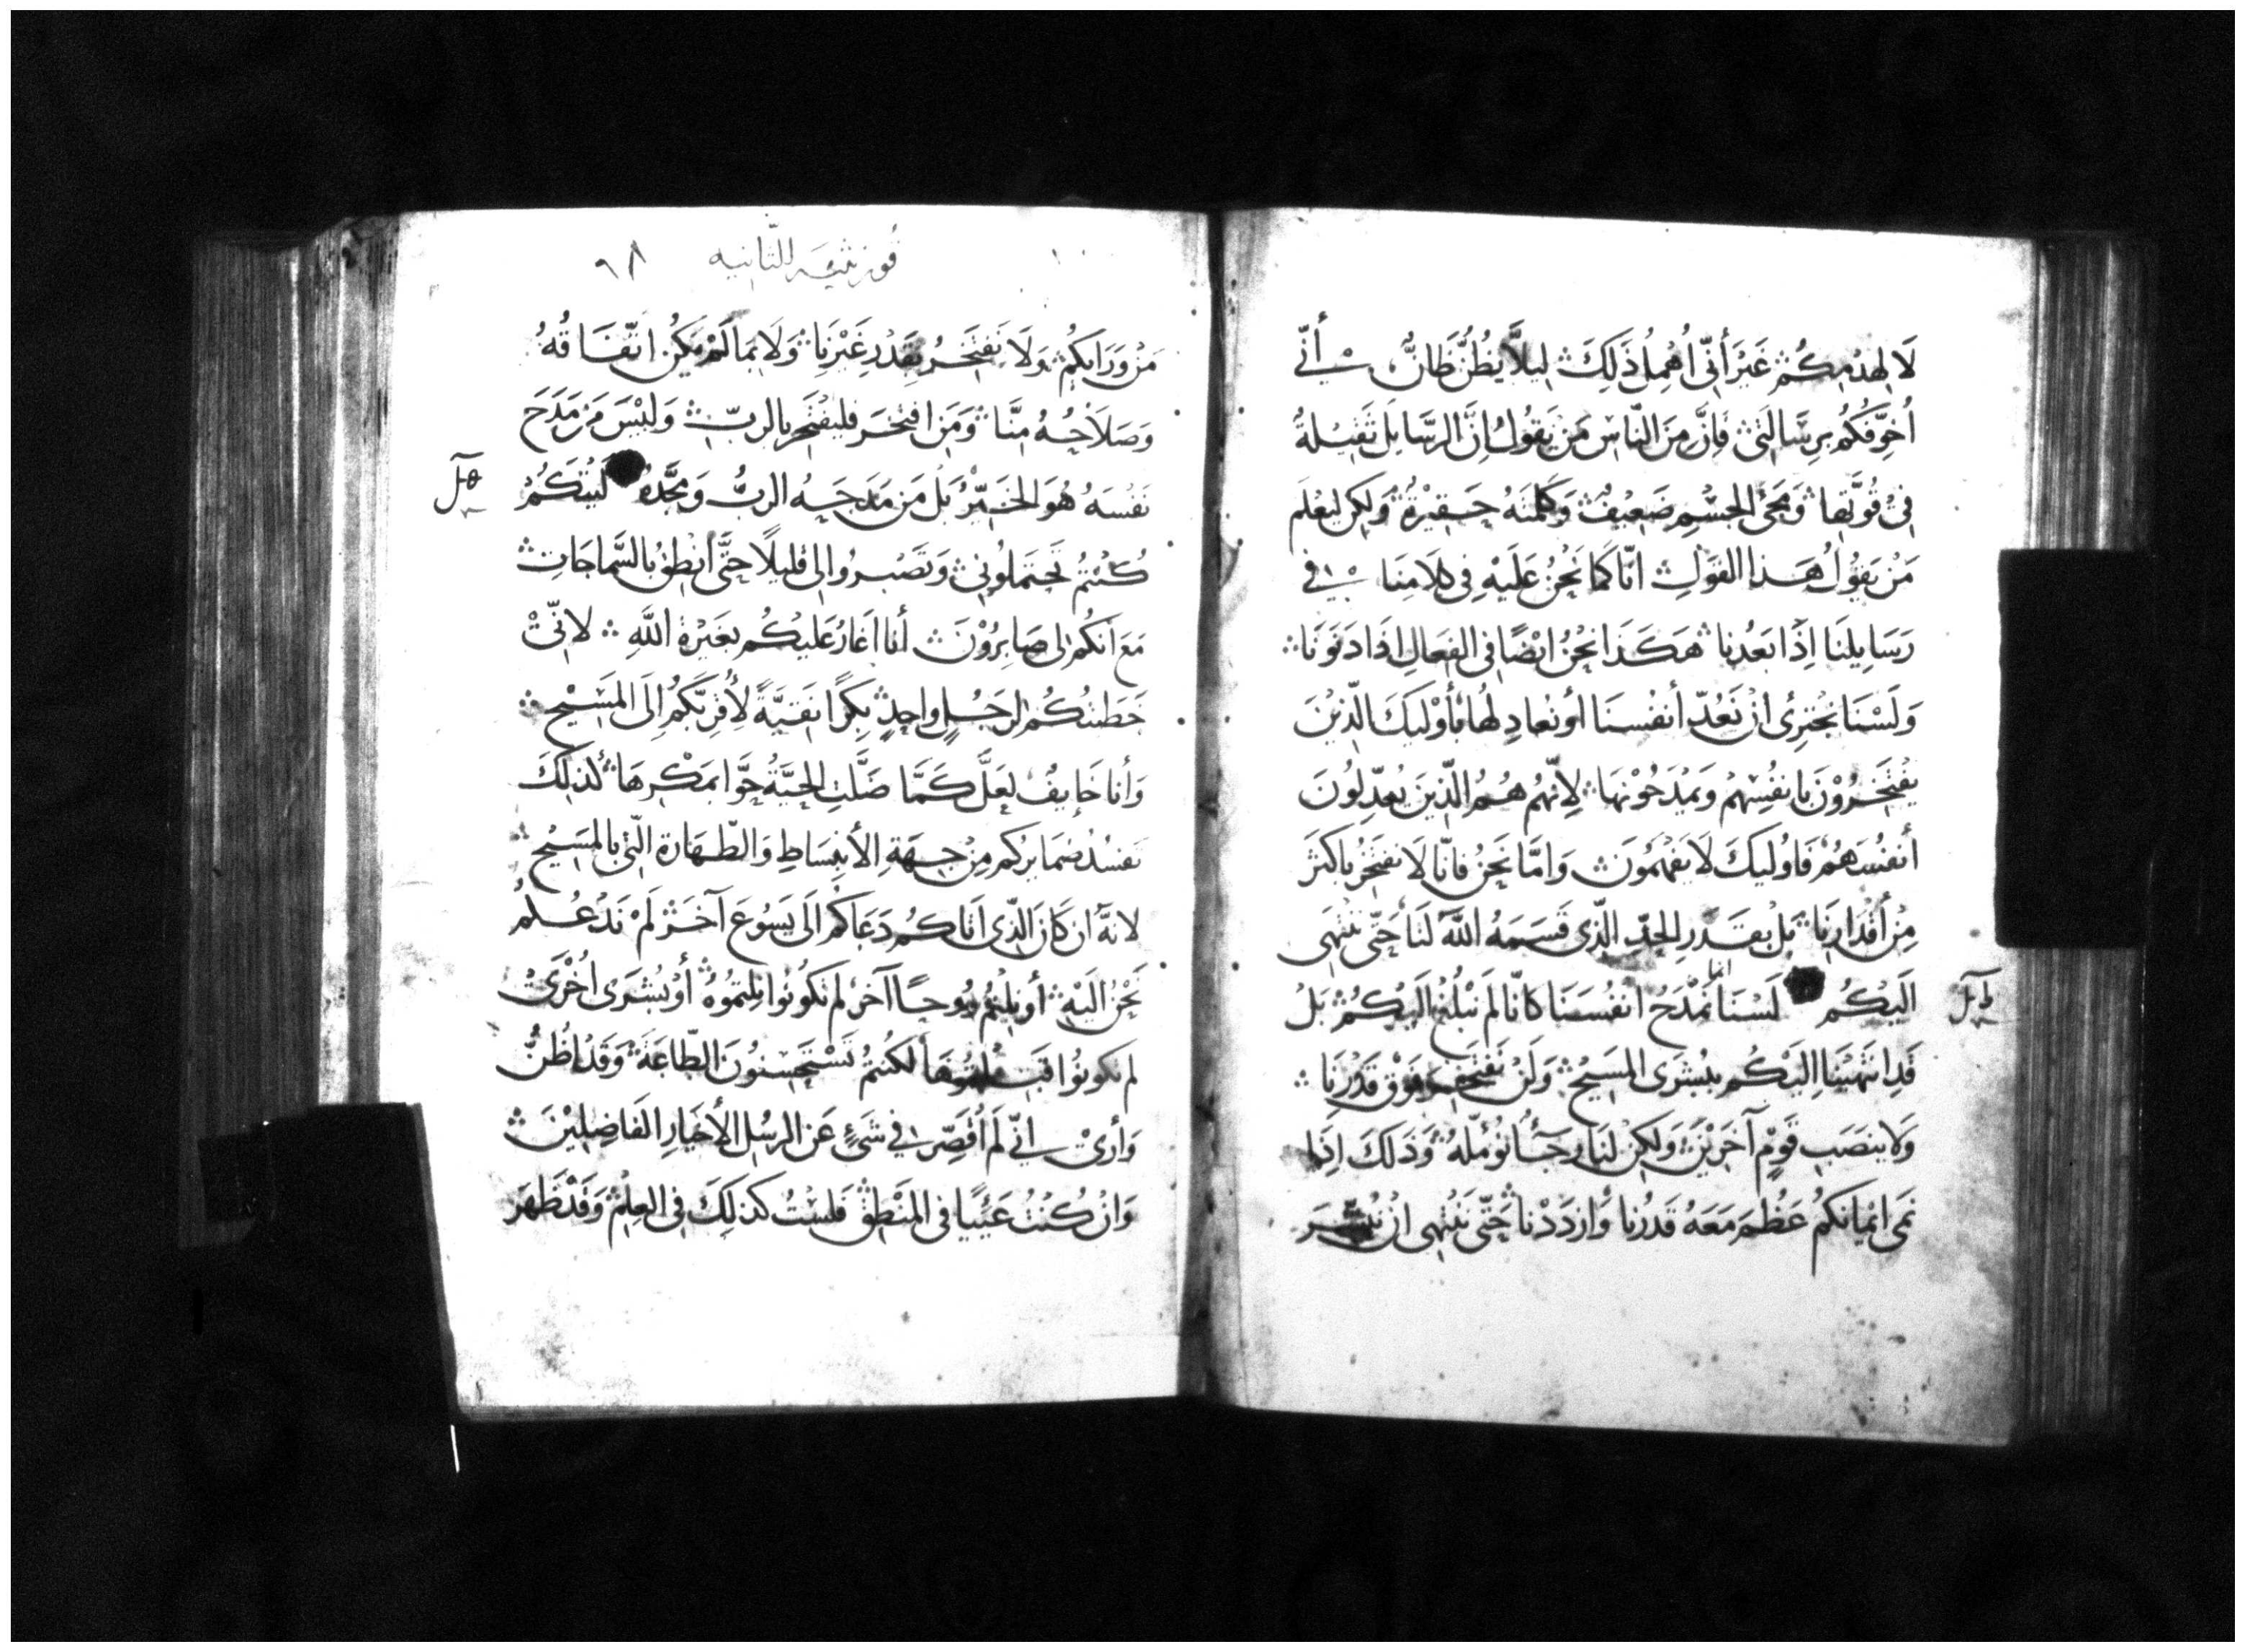 لَا لهدْمِكُمْ غَيْرَ أَنِّي اُهْمِلُ ذَلِكَ ليلَّا يظُنُّ ظَانٌّ أَنِّي
اُخَوِّفكُمْ بِرسَالتِي فَاِنَّ مِنَ النَّاسِ مَنْ يَقولُ اِنَّ الرسَايلَ ثَقِيلةٌ
فِي قُوَّتِها وَمَجِئ الجِسْمِ ضَعِيفٌ وَكلمتَهُ حَقِيرَةٌ وَلكِن ليَعْلَم
مَنْ يَقُولُ هَذا القَولِ انّا كَما نَحْنُ عَلَيْهِ فِي كلَامِنَا في
رَسَايلنَا اِذَا بَعُدنا هَكَذَا نَحْنُ ايْضًا في الفعَالِ اِذَا دَنَونَا
وَلَسْنَا نَجْترِئُ انْ نَعُدّ أنفُسنَا أو نُعادِلهَا بأُوْليكَ الّذِينَ
يَفْتَخِرُوْنَ بانفُسِهِمْ وَيَمْدَحُوْنهَا لِانّهُم هُمُ الّذِينَ يُعدِّلُونَ
أنفُسَهُمْ فَاوُليكَ لَا يَفْهَمُونَ وَامَّا نَحْنُ فانّا لَا نفتَخِرُ باكثَرَ
مِنْ أقْدَارِنَا بَلْ بقَدْرِ الحَدِّ الّذِي قَسَمَهُ اللهُ لَنَا حَتّى نَنْتَهِي
اليْكُم لَسْنَا انّما نَمْدَحُ انفُسَنَا كانّا لَم نَبْلُغ اليْكُمْ بَلْ
قَدِ انتَهَيْنَا اِليْكُم ببُشرَى المسِيحِ وَلَنْ نَفتَخِرَ فَوْق قَدْرِنَا
وَلا بِنصَبِ قَوْمٍ آخَرِيْنَ وَلكِنْ لنَا رجَآءً نُؤمّلهُ وَذَلكَ اِذَا
نَمى ايْمَانكُم عَظُمَ مَعَهُ قَدْرُنا وَازدَدْنا حَتّى نَنْتهِى انْ نُبَشِّرَ
لـٰ‍
قورنثيه الثانيه ٩٨
مَنْ وَرَايكُم وَلَا نَفتَخِرُ بِقَدْرِ غَيْرِنَا وَلَا بمَا لَمْ يَكُن اتّفَاقُهُ
وَصَلَاحُهُ مِنَّا وَمَن افتخَرَ فليَفتخِر بالربِّ وَليْسَ مَنْ مَدَحَ
نَفسَهُ هُوَ الخَيّرُ بَلْ مَن مَدَحَهُ الربُّ وَمَجَّدهُ لَيتكُمْ
كُنْتُم تَحتَملُوني وَتَصْبروُا لي قليلًا حَتَّى انْطِقُ بالسَّماجَاتِ
مَعَ انكُم لى صَابِرُوْنَ أنا اَغَارُ عَليْكُم بغَيْرَةِ اللهِ لانّيْ
خَطَبْتُكُم لرَجُلٍ واحِدٍ بِكرًا نَقيّةً لأُقرِّبكُم اِلَى المسِيْحِ
وَأنا خَايفٌ لعَلَّ كَمَا ضَلَّتِ الحيَّةُ حَوَّا بمَكْرِهَا كذلِكَ
تَفسُدُ ضمَايركُم مِنْ جِهَةِ الأنبِسَاطِ وَالطّهَارةِ الّتي بالمسِيْحِ
لانهُ ان كَانَ الّذِى اتاكُم دَعَاكُم الَى يَسُوعَ آخَرْ لَمْ نَدْعُكُمُ
نَحْنُ اليْهِ أو نِلتُم رُوحًا آخر لَم تكُونُوا نِلتمُوهُ أوْ بُشرَى اُخْرَىْ
لم تكونُوا قَبِلتموهَا لكُنْتُم تَسْتحْسِنُونَ الطّاعَةَ وَقَدْ اظُنُّ
وَأرى انّي لَم اُقصِّر في شَئٍ عَن الرسُلِ الأخيَارِ الفَاضِلِيْنَ
وَانْ كُنْتُ عَيِيًا في المنْطِقِ فَلسْتُ كذلِكَ في العِلْمِ وَقَدْ ظَهَرَ